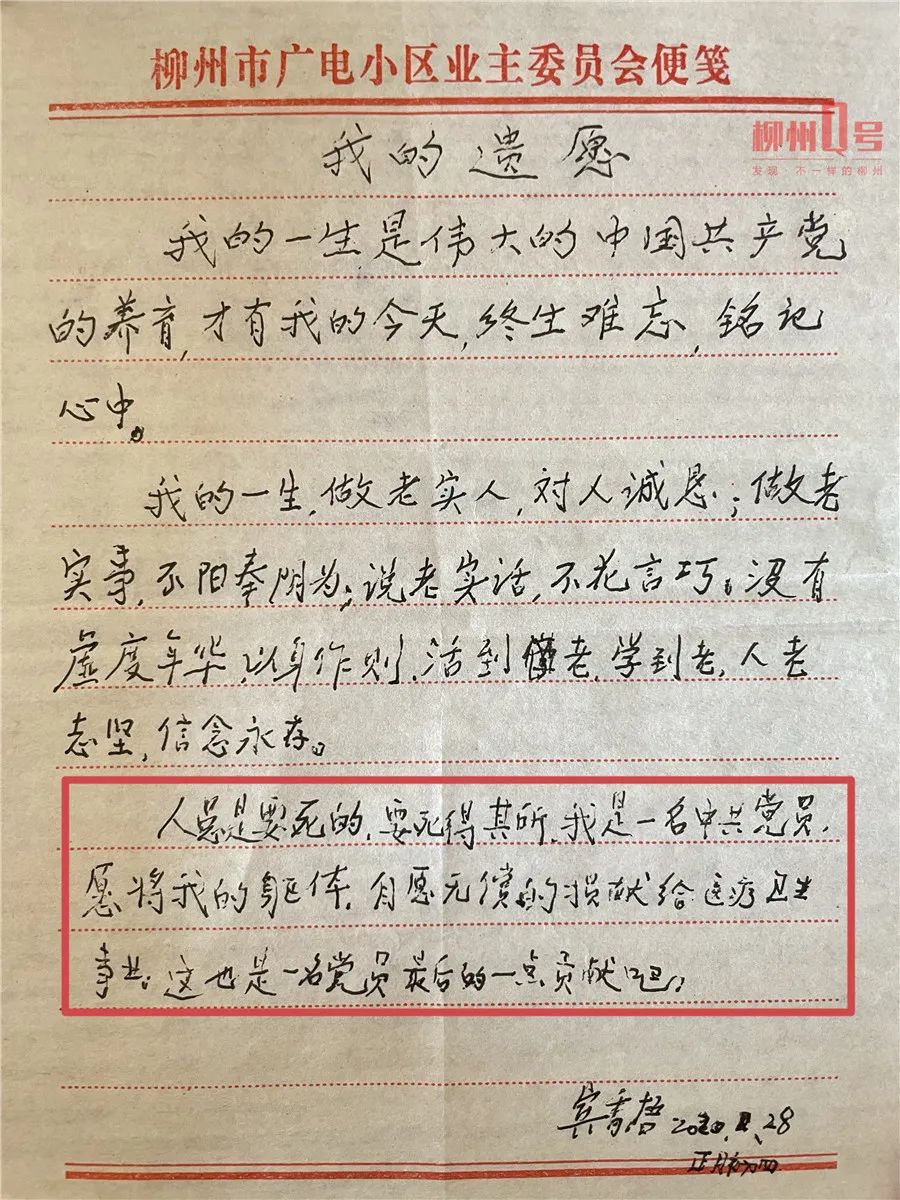 柳州市广电小区业主委员会便笺
柳州Q号
发现 不一样的柳州
我的遗愿
我的一生是伟大的中国共产党
的养育,才有我的今天,终生难忘,铭记
心中。
我的一生,做老实人,对人诚恳;做老
实事,不阳奉阴为;说老实话,不花言巧。没有
虚度年华,以身作则,活到老,学到老,人老
志坚,信念永存。
人总是要死的,要死得其所,我是一名中共党员,
愿将我的躯体,自愿无偿的损献给医疗卫生
事业。这也是一名党员最后的一点贡献吧。
宾 28